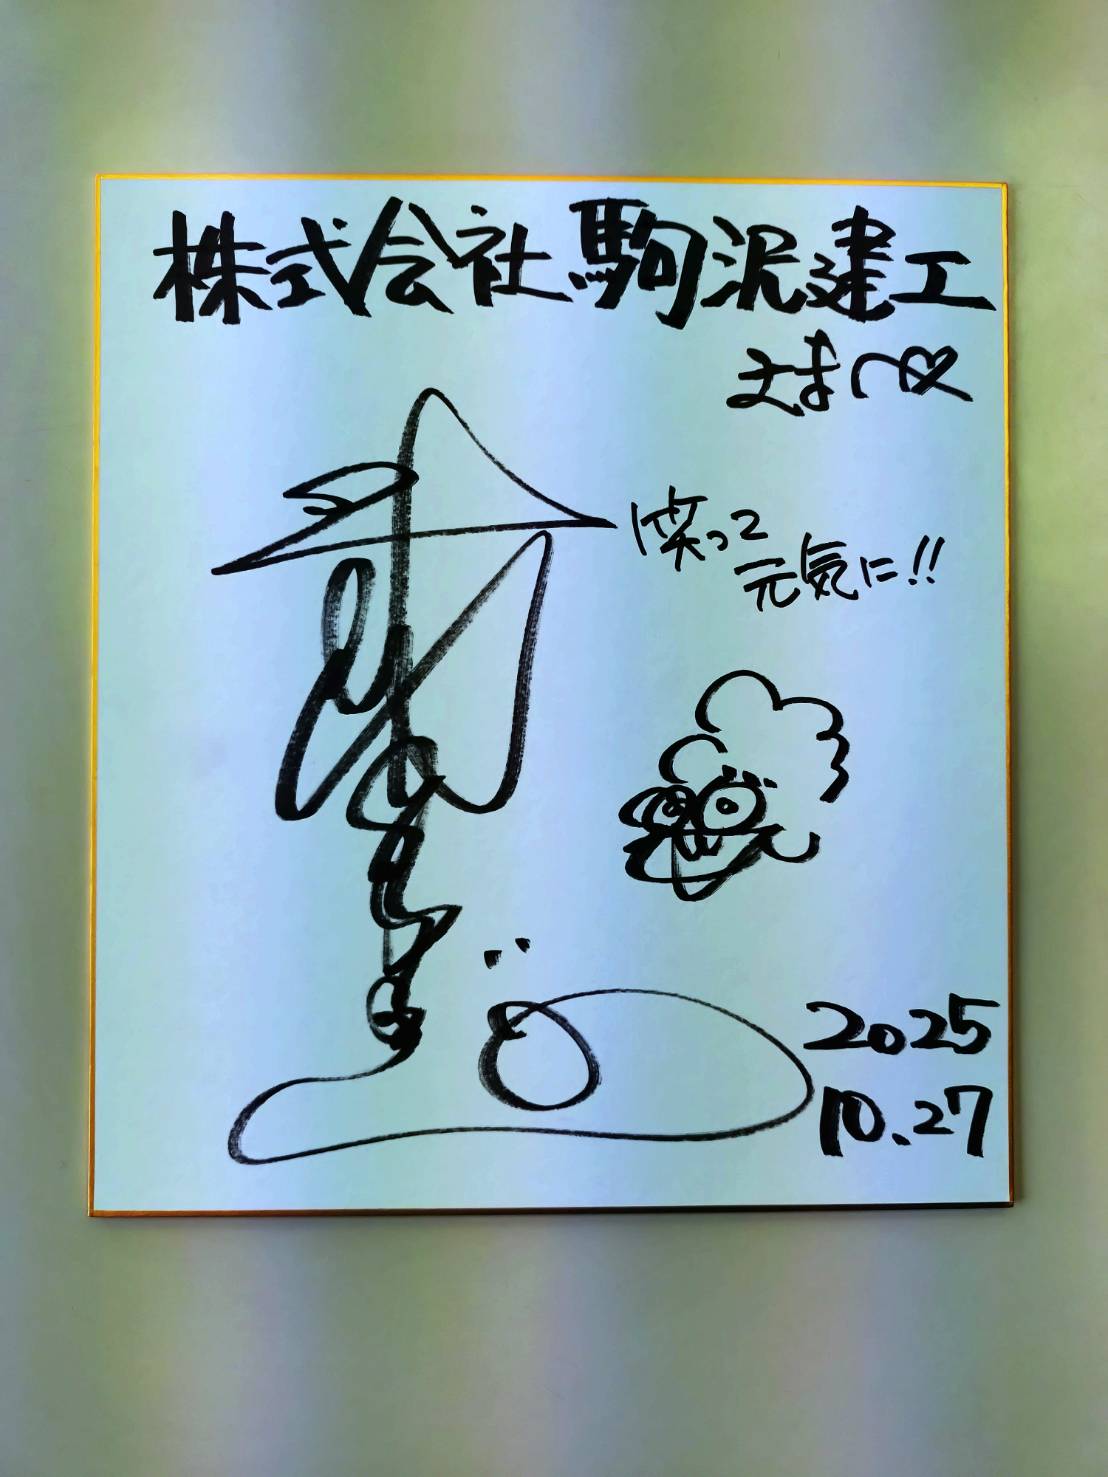 株式会社駒沢建工
さまへ
笑って
元気に!!
2025
10.27